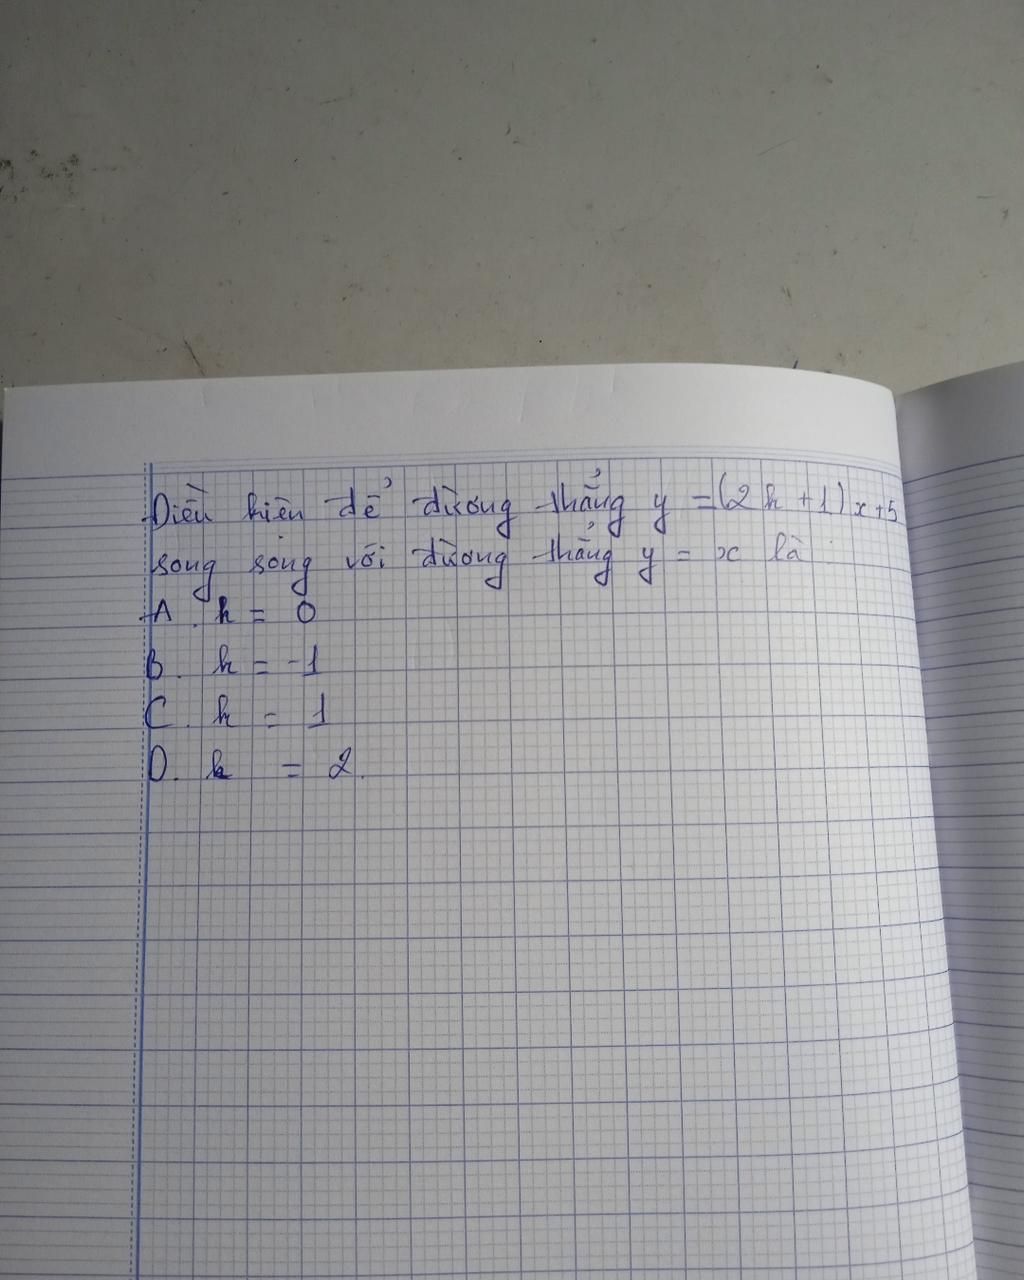 Điều kiện để đường thẳng y = (2k + 1) x + 5
song song với đường thẳng y = x là :
A. k = 0
B. k = -1
C. k = 1
D. k = 2.